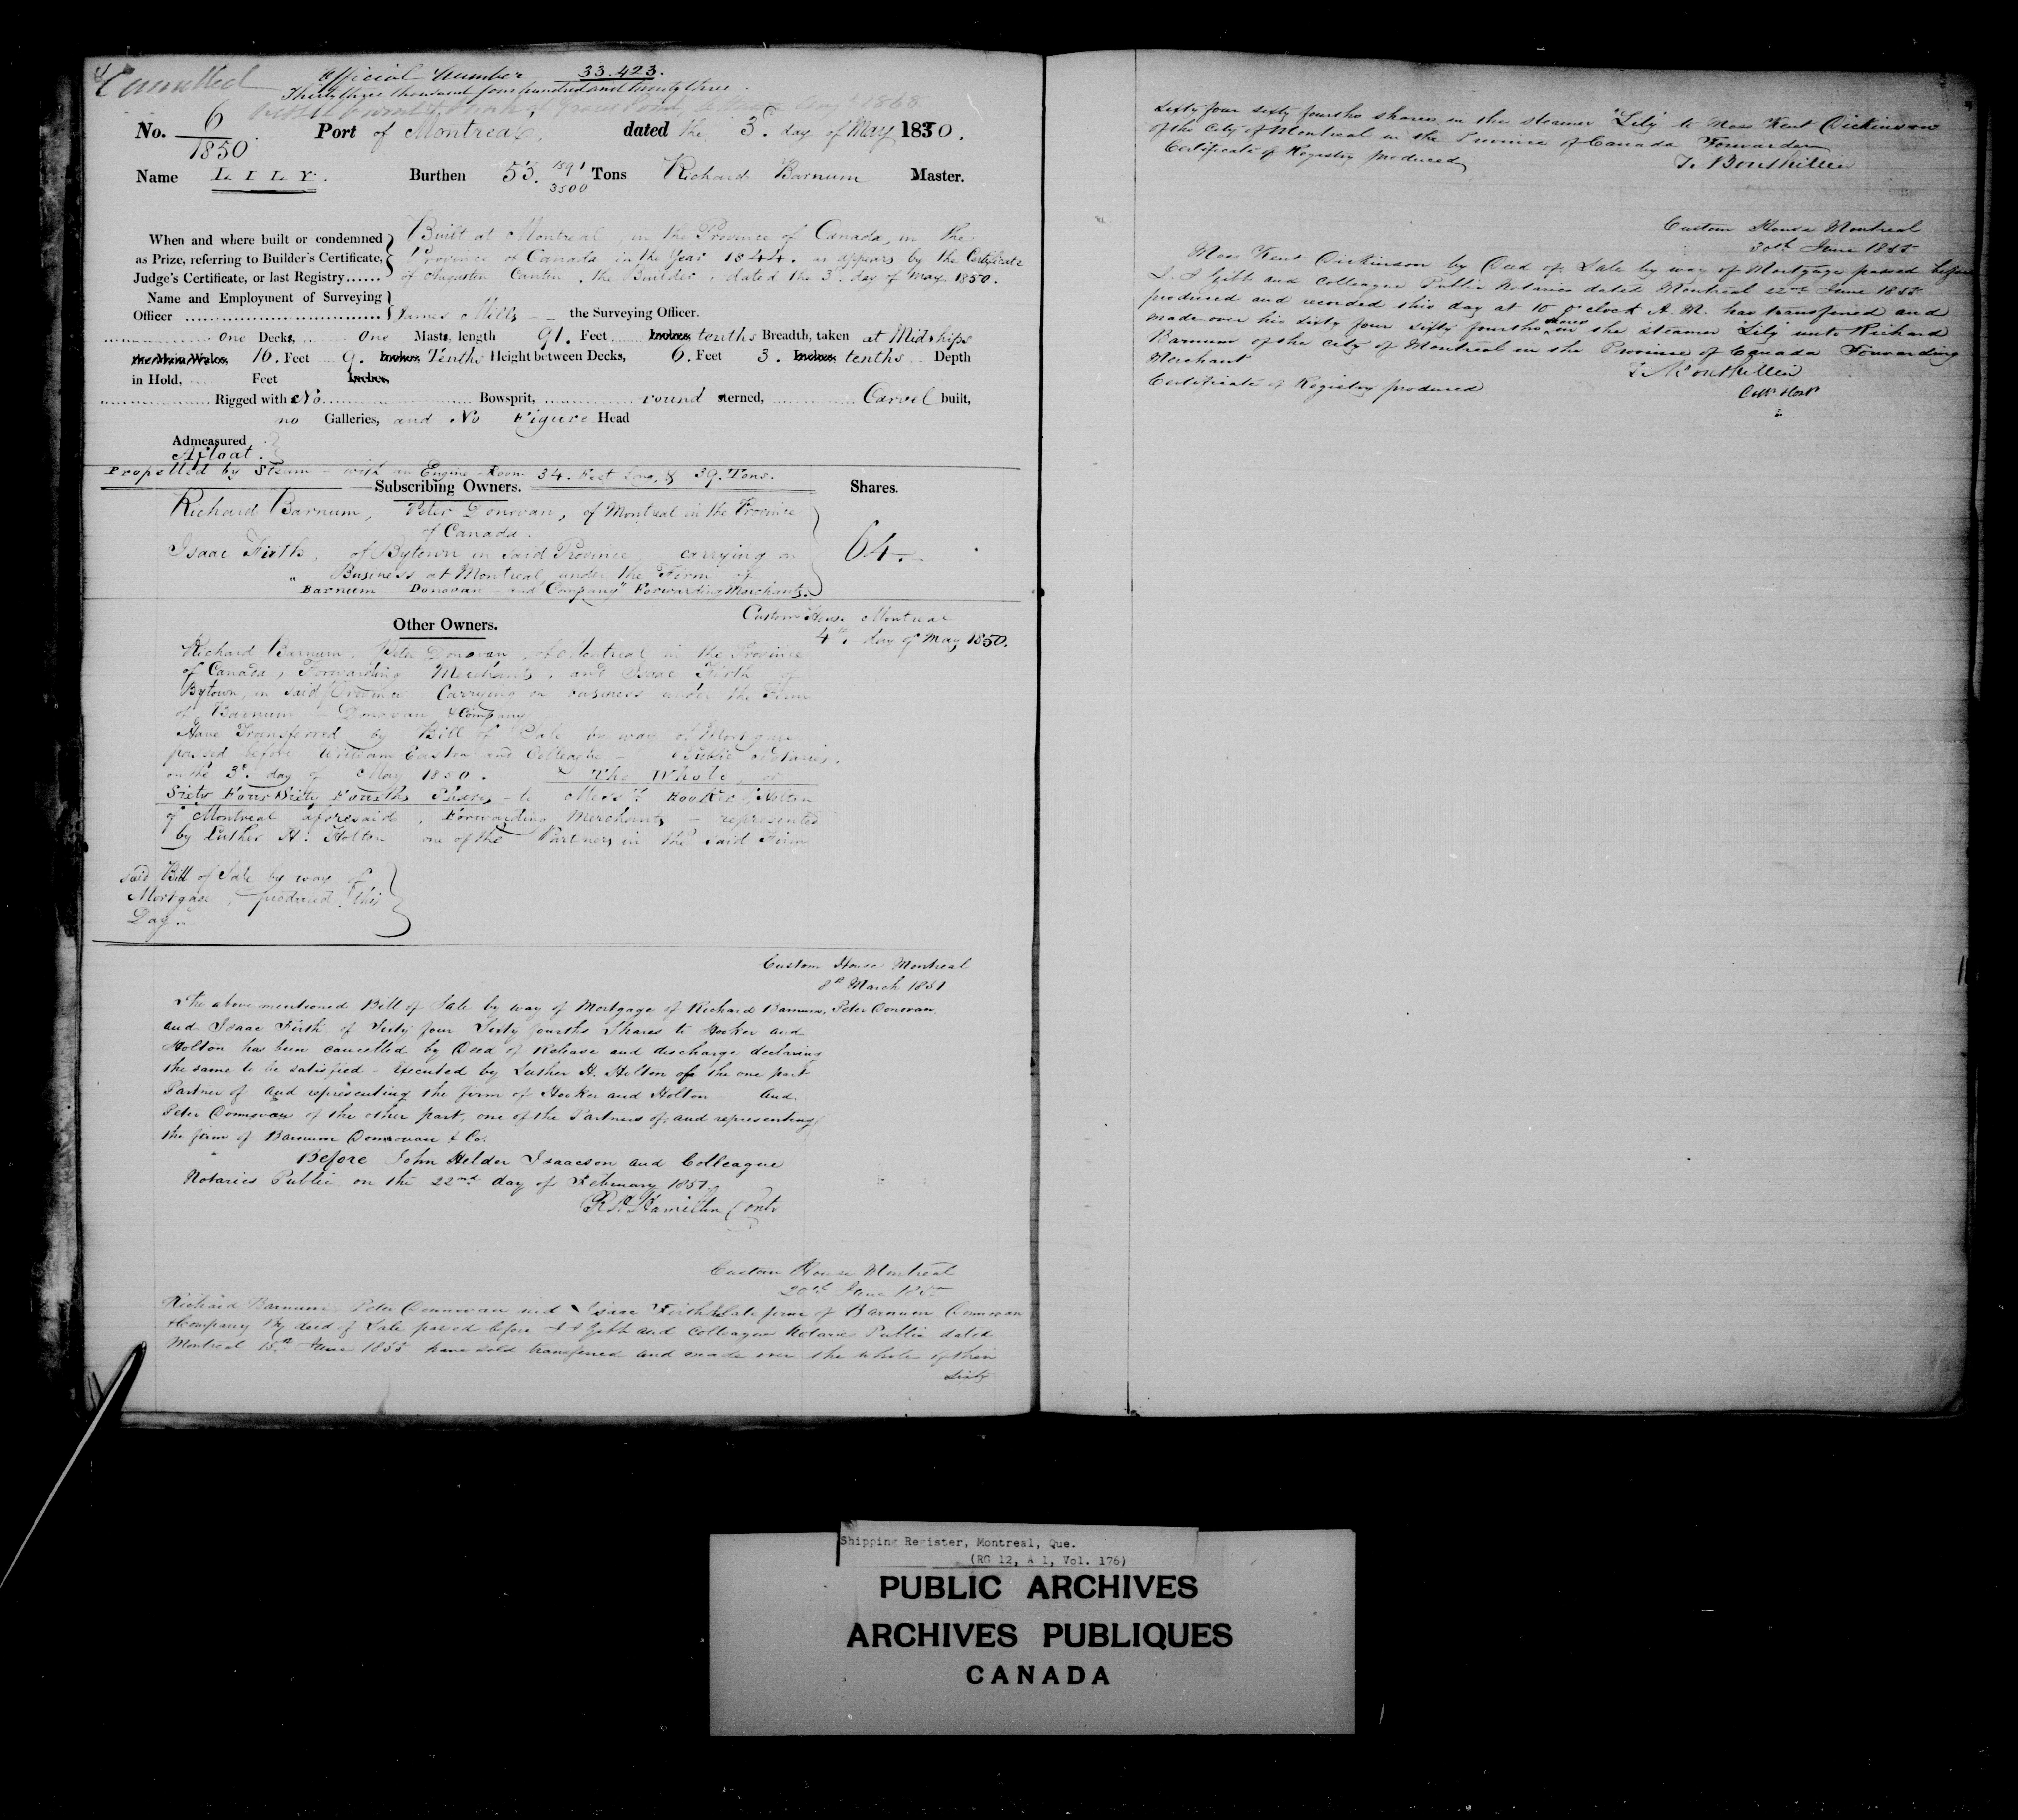 Cancelled
Official Number 33.423.
Thirty three thousand four hundred and twenty three.
Vessel burnt & sunk at Ottawa Augt 1868
No. 6/1850. Port of Montreal, dated the 3d. day of May 1850.
Name LILY. Burthen 53. 1891/3500 Tons Richard Barnum Master.
When and where built or condemned as Prize, referring to Builder's Certificate, Judge's Certificate, or last Registry......
Built at Montreal, in the Province of Canada, in the
Province of Canada in the Year 1844. as appears by the Certificate
of Augustin Cantin, the Builder, dated the 3d. day of May 1850.
Name and Employment of Surveying Officer
James Mills the Surveying Officer.
one Decks, one Masts, length 91. Feet Inches tenths Breadth, taken at Midships
the Main Wales, 16. Feet 9. Inches Tenths Height between Decks, 6. Feet 3. Inches tenths Depth
in Hold, .... Feet Inches,
Rigged with No Bowsprit, round sterned, Carvel built,
no Galleries, and No Figure Head
Admeasured
Afloat.
Propelled by Steam - with an Engine Room 34. Feet Long, & 39. Tons.
Subscribing Owners. Shares.
Richard Barnum, Peter Donovan, of Montreal in the Province
of Canada.
Isaac Firth, of Bytown in said Province, carrying on
Business at Montreal, under the Firm of
"Barnum - Donovan - and Company" Forwarding Merchants.
64.
Other Owners.
Custom House Montreal
4th. day of May 1850.
Richard Barnum, Peter Donovan, of Montreal in the Province
of Canada, Forwarding Merchants, and Isaac Firth of
Bytown, in said Province Carrying on business under the Firm
of Barnum - Donovan & Company
Have Transferred by Bill of Sale by way of Mortgage
passed before William Easton and Colleague - Public Notaries,
on the 3d. day of May 1850. The Whole, or
Sixty Four Sixty Fourths Shares - to Messrs. Hooker & Holton
of Montreal aforesaid, Forwarding Merchants - represented
by Luther H. Holton one of the Partners in the said Firm
said Bill of Sale by way of
Mortgage, produced this
Day..
Custom House Montreal
8th March 1851
The above mentioned Bill of Sale by way of Mortgage of Richard Barnum, Peter Donovan,
and Isaac Firth of Sixty four Sixty fourths Shares to Hooker and
Holton has been cancelled by Deed of Release and discharge declaring
the same to be satisfied - Executed by Luther H. Holton of the one part
Partner of and representing the firm of Hooker and Holton - And
Peter Donnovan of the other part, one of the Partners of, and representing
the firm of Barnum Donnovan & Co.
Before John Helder Isaacson and Colleague
Notaries Public on the 22nd day of February 1851.
Hamilton Contr
Custom House Montreal
20th June 1855
Richard Barnum, Peter Donnovan and Isaac Firth late firm of Barnum Donnovan
& Company By deed of Sale passed before I J Gibb and Colleague Notaries Public dated
Montreal 15th June 1855 have sold transferred and made over the whole of their
Sixty
sixty four sixty fourths shares in the steamer "Lily" to Moss Kent Dickinson
of the City of Montreal in the Province of Canada Forwarder
Certificate of Registry produced
T. Bouthillier
Custom House Montreal
30th June 1855
Moss Kent Dickinson by Deed of Sale by way of Mortgage passed before
I. J Gibb and Colleague Public Notaries dated Montreal 22nd June 1855
produced and recorded this day at 10 o'clock A.M. has transferred and
made over his sixty four sixty fourths shares in the steamer Lily unto Richard
Barnum of the City of Montreal in the Province of Canada Forwarding
Merchant
Certificate of Registry produced
T. Bouthillier
Shipping Register, Montreal, Que.
(RG 12, A 1, Vol. 176)
PUBLIC ARCHIVES
ARCHIVES PUBLIQUES
CANADA